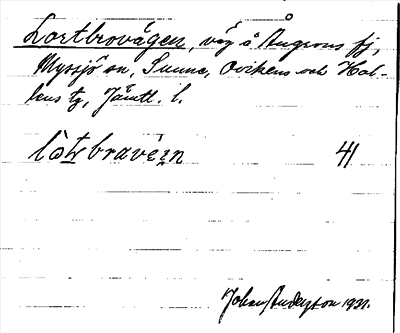 Lortbrovägen, väg å Ångrons fj,
Myssjö sn, Sunne, Ovikens och Hal-
lens tg, Jämtl. l.
lòtbravéɪn 41
Johan Anderson 1931.